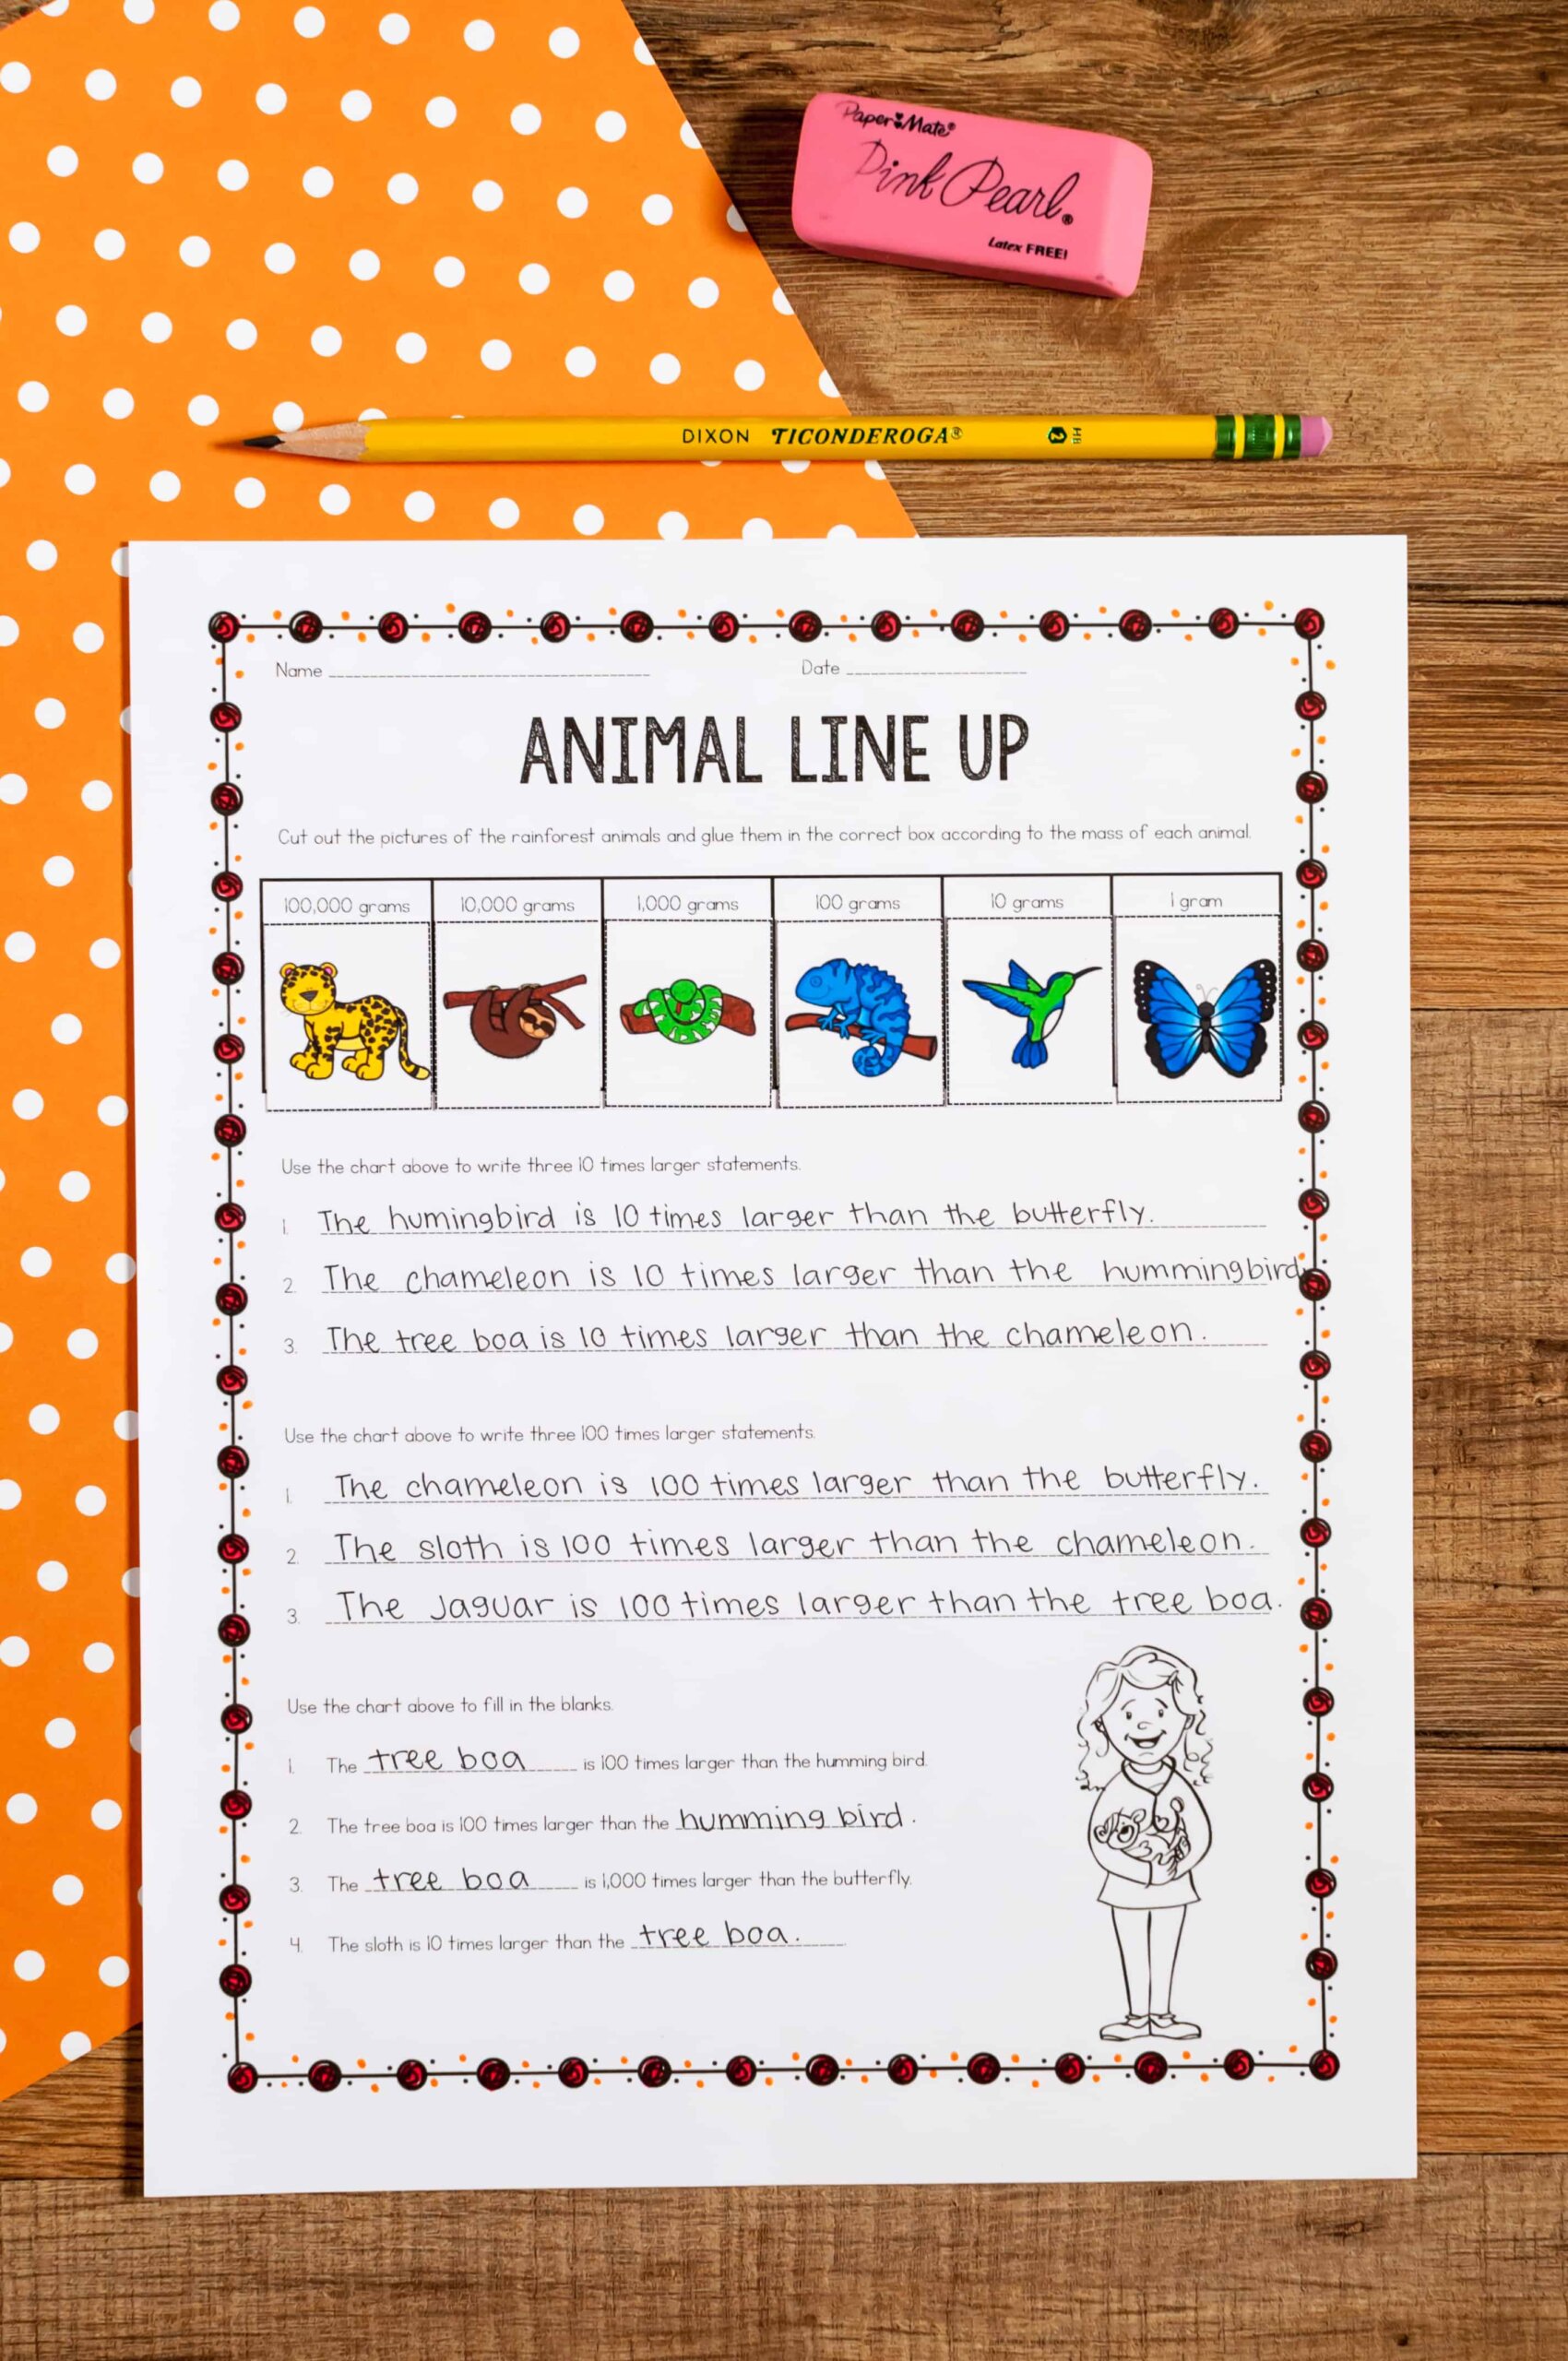 Paper Mate®
Pink Pearl®
Latex FREE!
DIXON TICONDEROGA® 2 HB
Name Date
ANIMAL LINE UP
Cut out the pictures of the rainforest animals and glue them in the correct box according to the mass of each animal.
100,000 grams 10,000 grams 1,000 grams 100 grams 10 grams 1 gram
Use the chart above to write three 10 times larger statements.
1. The humingbird is 10 times larger than the butterfly.
2. The chameleon is 10 times larger than the hummingbird.
3. The tree boa is 10 times larger than the chameleon.
Use the chart above to write three 100 times larger statements.
1. The chameleon is 100 times larger than the butterfly.
2. The sloth is 100 times larger than the chameleon.
3. The Jaguar is 100 times larger than the tree boa.
Use the chart above to fill in the blanks.
1. The tree boa is 100 times larger than the humming bird.
2. The tree boa is 100 times larger than the humming bird.
3. The tree boa is 1,000 times larger than the butterfly.
4. The sloth is 10 times larger than the tree boa.